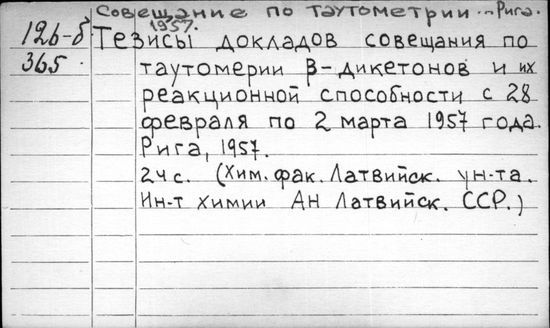 Совещание по таутометрии. – Рига.
1957.
126-б Тезисы докладов совещания по
365. таутомерии β-дикетонов и их
реакционной способности с 28
февраля по 2 марта 1957 года.
Рига, 1957.
24 с. (Хим. фак. Латвийск. ун-та.
Ин-т химии АН Латвийск. ССР.)